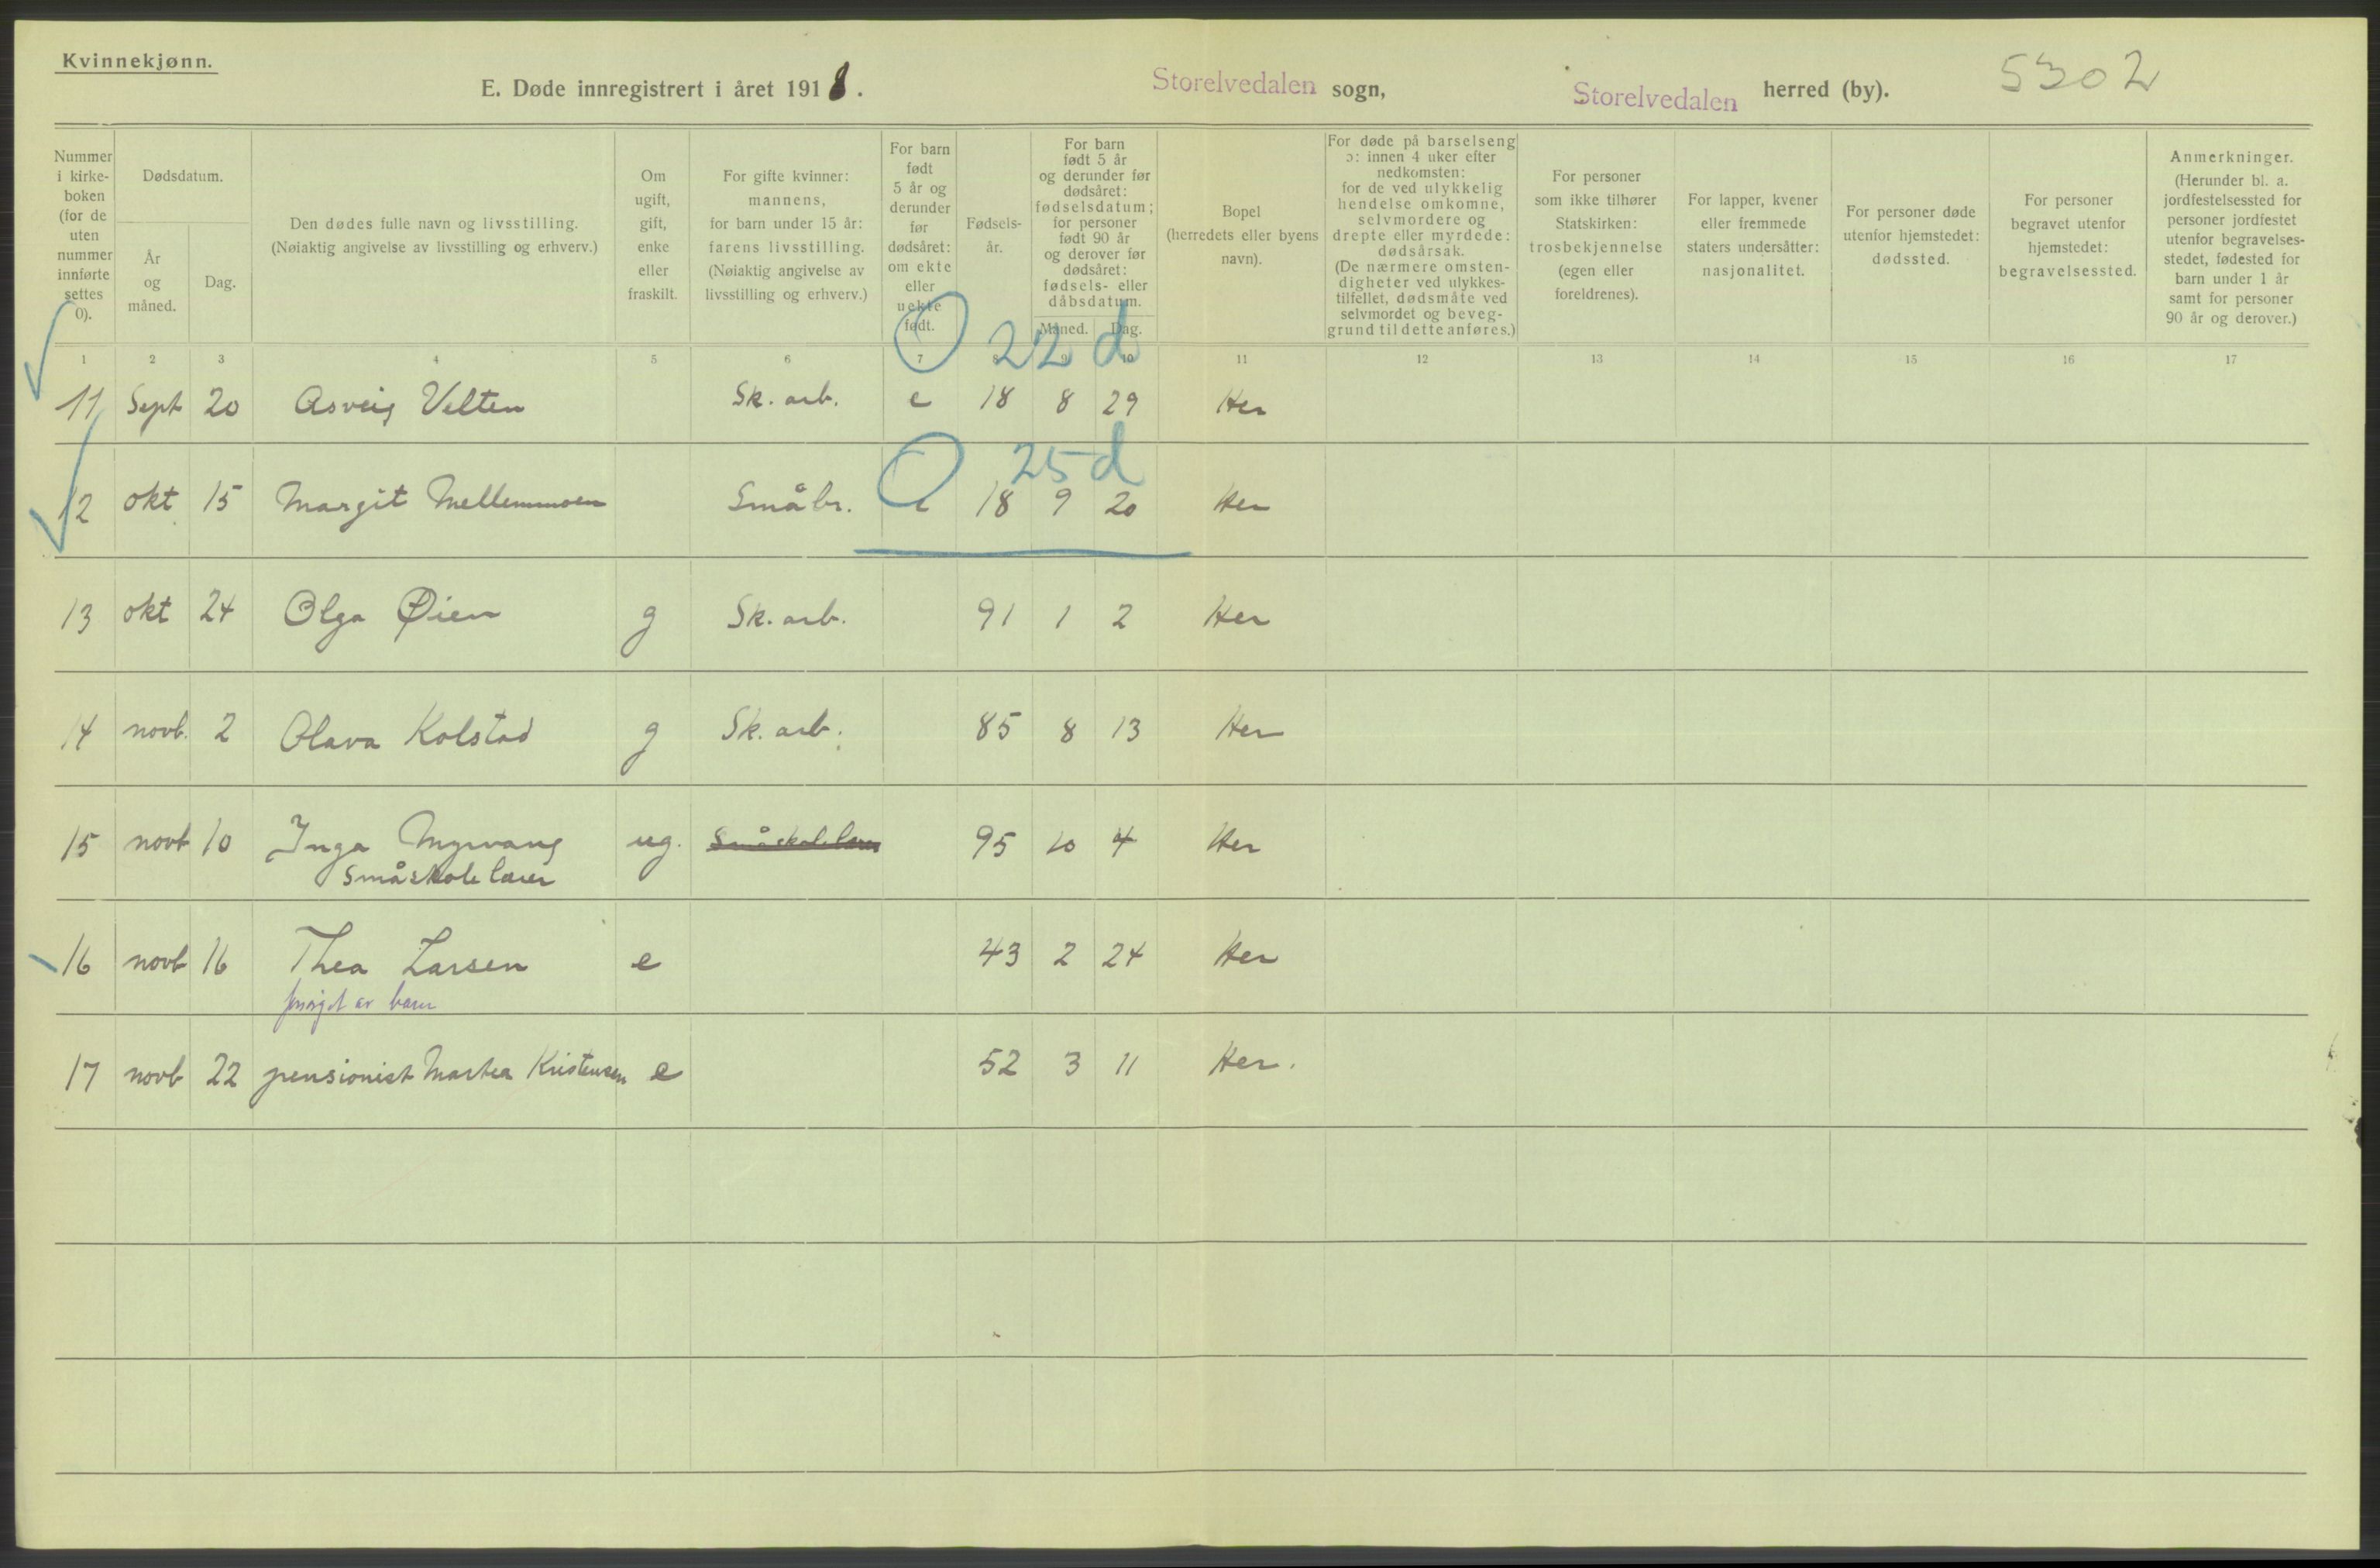 Kvinnekjønn.
E. Døde innregistrert i året 1918. Storelvedalen sogn, Storelvedalen herred (by). 5302
Nummer i kirke-boken (for de uten nummer innførte settes 0).
Dødsdatum.
År og måned.
Dag.
Den dødes fulle navn og livsstilling.
(Nøiaktig angivelse av livsstilling og erhverv.)
Om ugift, gift, enke eller fraskilt.
For gifte kvinner: mannens, for barn under 15 år: farens livsstilling.
(Nøiaktig angivelse av livsstilling og erhverv.)
For barn født 5 år og derunder før dødsåret: om ekte eller uekte født.
Fødsels-år.
For barn født 5 år og derunder før dødsåret: fødselsdatum; for personer født 90 år og derover før dødsåret: fødsels- eller dåbsdatum.
Måned. Dag.
Bopel (herredets eller byens navn).
For døde på barselseng ɔ: innen 4 uker efter nedkomsten: for de ved ulykkelig hendelse omkomne, selvmordere og drepte eller myrdede: dødsårsak.
(De nærmere omsten-digheter ved ulykkes-tilfellet, dødsmåte ved selvmordet og beveg-grund til dette anføres.)
For personer som ikke tilhører Statskirken: trosbekjennelse (egen eller foreldrenes).
For lapper, kvener eller fremmede staters undersåtter: nasjonalitet.
For personer døde utenfor hjemstedet: dødssted.
For personer begravet utenfor hjemstedet: begravelsessted.
Anmerkninger.
(Herunder bl. a. jordfestelsessted for personer jordfestet utenfor begravelses-stedet, fødested for barn under 1 år samt for personer 90 år og derover.)
1 2 3 4 5 6 7 8 9 10 11 12 13 14 15 16 17
22 d
11 Sept 20 Asveig Velten Sk. arb. e 18 8 29 Her
25 d
12 okt 15 Margit Mellemmoen Småbr. e 18 9 20 Her
13 okt 24 Olga Øien g Sk. arb. 91 1 2 Her
14 novb. 2 Olava Kolstad g Sk. arb. 85 8 13 Her
15 novb 10 Inga Myrvang ug. Småskolelærer 95 10 4 Her
Småskolelærer
16 novb 16 Thea Larsen e 43 2 24 Her
forsørget av barn
17 novb 22 pensionist Marthea Kristensen e 52 3 11 Her.